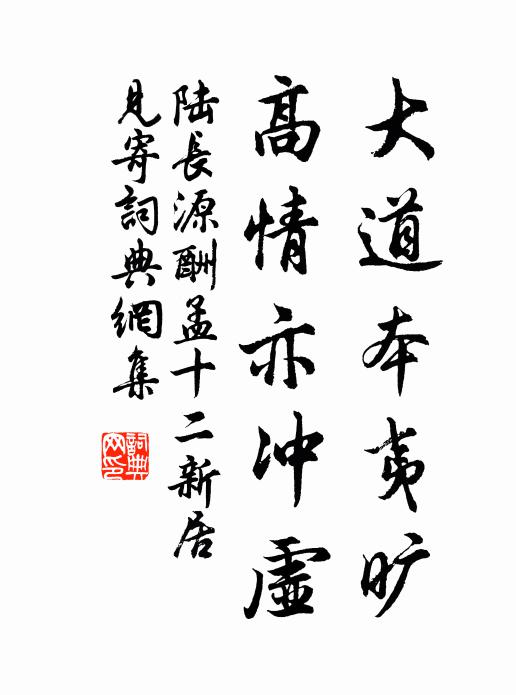 大道本夷旷
高情亦冲虛
陆長源酬孟十二新居
見寄詞典網集
詞典网印